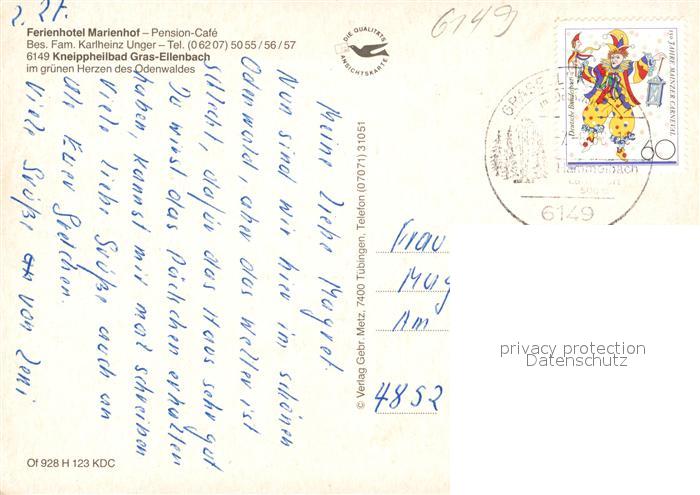 2. 27.
Ferienhotel Marienhof – Pension-Café
Bes. Fam. Karlheinz Unger – Tel. (06207) 5055/56/57
6149 Kneippheilbad Gras-Ellenbach
im grünen Herzen des Odenwaldes
DIE QUALITÄTS
ANSICHTSKARTE
6149
Deutsche Bundespost
150 JAHRE MAINZER CARNEVAL
60
GRAS-ELL
Hammelbach
6149
Meine liebe Magret.
Nun sind wir hier im schönen
Odenwald, aber das Wetter ist
schlecht, dafür das Haus sehr gut
Du wirst das Päckchen erhalten
haben, kannst mir mal schreiben
Viele liebe Grüße auch an
alle Eure
Viele Grüße von Leni
© Verlag Gebr. Metz, 7400 Tübingen, Telefon (07071) 31051
Frau
Mag
Am
4852
privacy protection
Datenschutz
Of 928 H 123 KDC